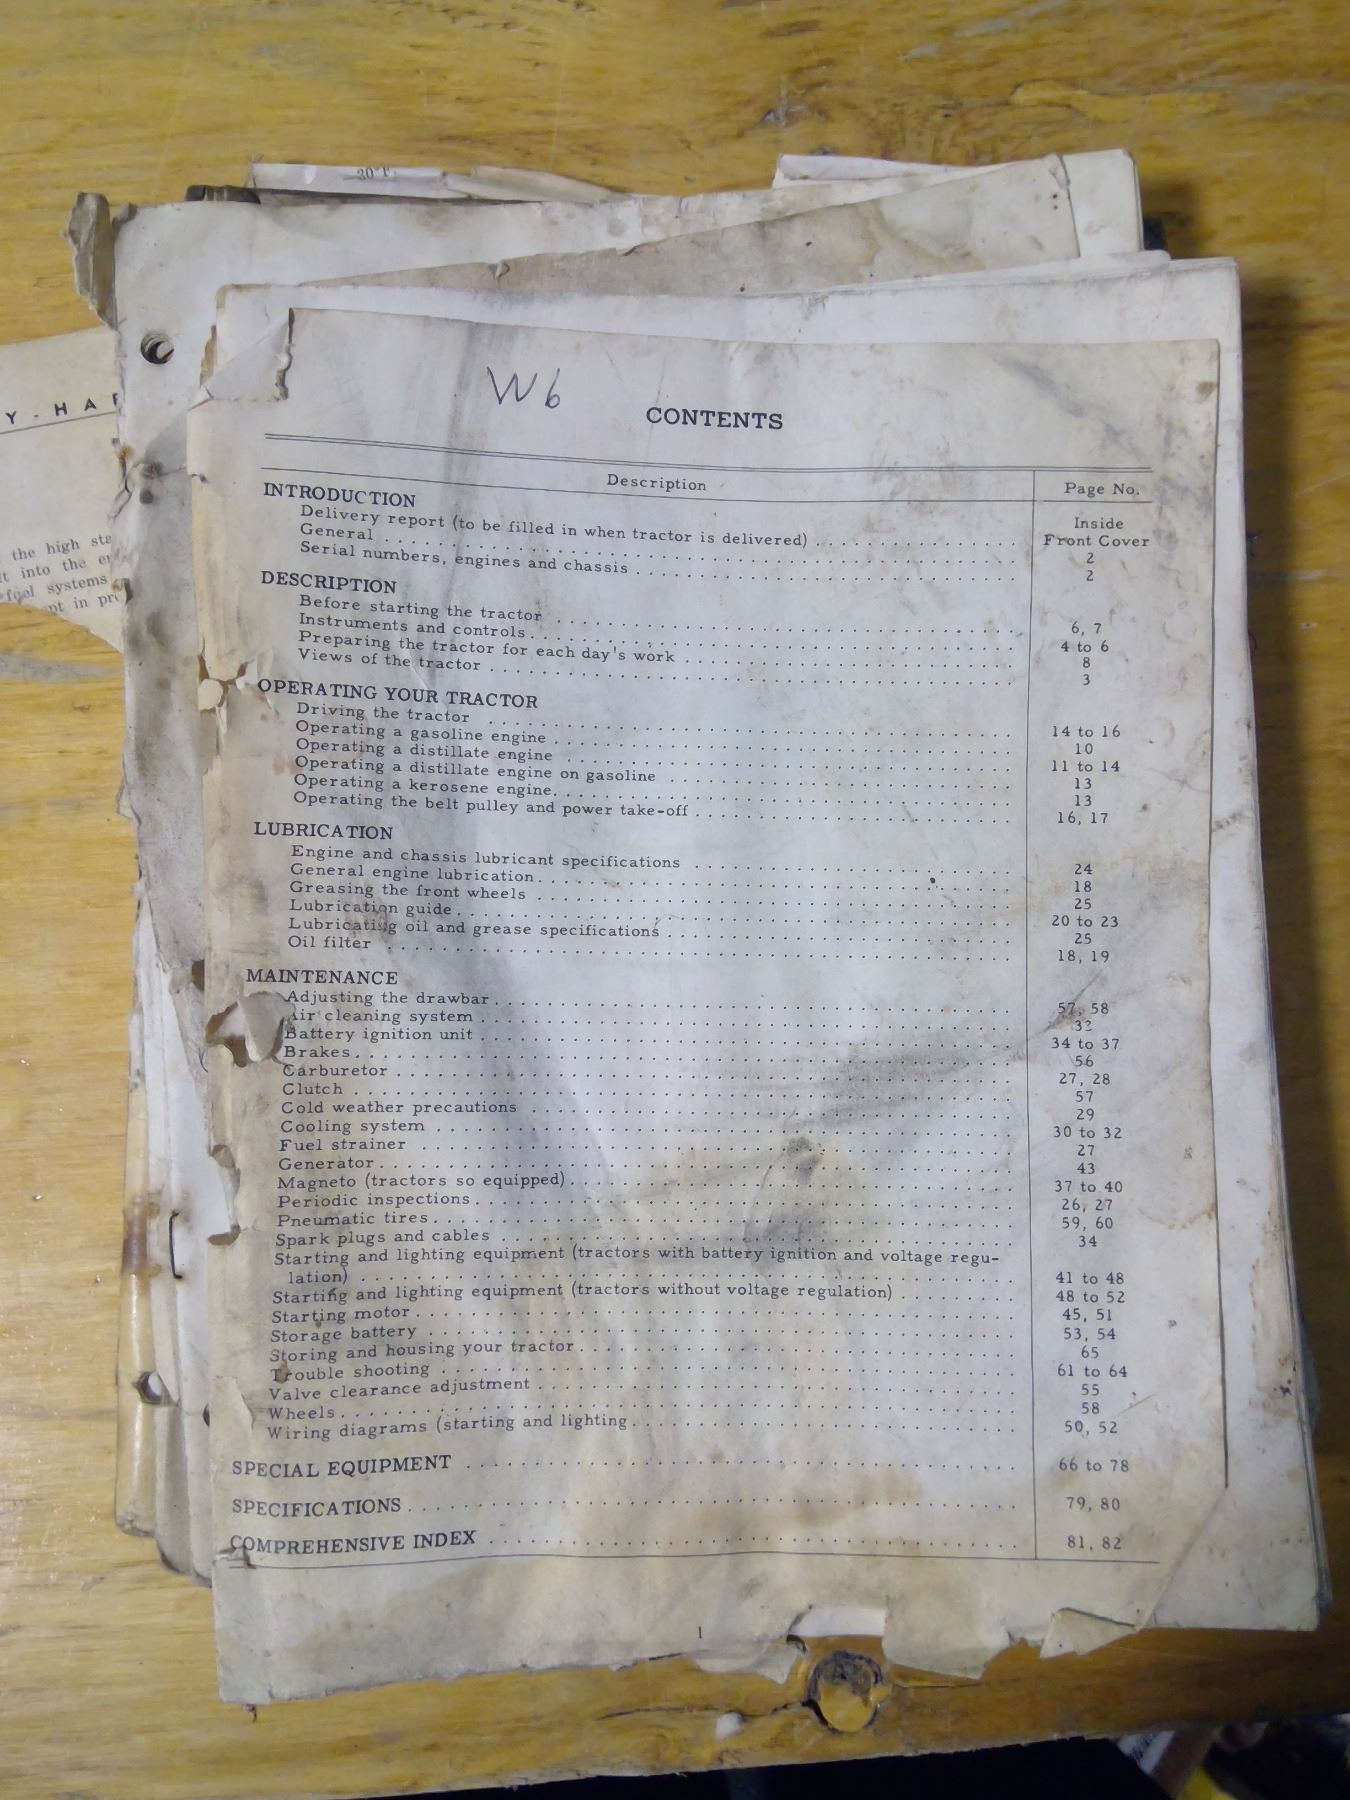 30°F.
Y-HAR
the high sta
t into the en
fuel systems
pt in pro
W6
CONTENTS
Description Page No.
INTRODUCTION
Delivery report (to be filled in when tractor is delivered) Inside Front Cover
General 2
Serial numbers, engines and chassis 2
DESCRIPTION
Before starting the tractor 6, 7
Instruments and controls 4 to 6
Preparing the tractor for each day's work 8
Views of the tractor 3
OPERATING YOUR TRACTOR
Driving the tractor 14 to 16
Operating a gasoline engine 10
Operating a distillate engine 11 to 14
Operating a distillate engine on gasoline 13
Operating a kerosene engine 13
Operating the belt pulley and power take-off 16, 17
LUBRICATION
Engine and chassis lubricant specifications 24
General engine lubrication 18
Greasing the front wheels 25
Lubrication guide 20 to 23
Lubricating oil and grease specifications 25
Oil filter 18, 19
MAINTENANCE
Adjusting the drawbar 57, 58
Air cleaning system 33
Battery ignition unit 34 to 37
Brakes 56
Carburetor 27, 28
Clutch 57
Cold weather precautions 29
Cooling system 30 to 32
Fuel strainer 27
Generator 43
Magneto (tractors so equipped) 37 to 40
Periodic inspections 26, 27
Pneumatic tires 59, 60
Spark plugs and cables 34
Starting and lighting equipment (tractors with battery ignition and voltage regu-
lation) 41 to 48
Starting and lighting equipment (tractors without voltage regulation) 48 to 52
Starting motor 45, 51
Storage battery 53, 54
Storing and housing your tractor 65
Trouble shooting 61 to 64
Valve clearance adjustment 55
Wheels 58
Wiring diagrams (starting and lighting 50, 52
SPECIAL EQUIPMENT 66 to 78
SPECIFICATIONS 79, 80
COMPREHENSIVE INDEX 81, 82
1